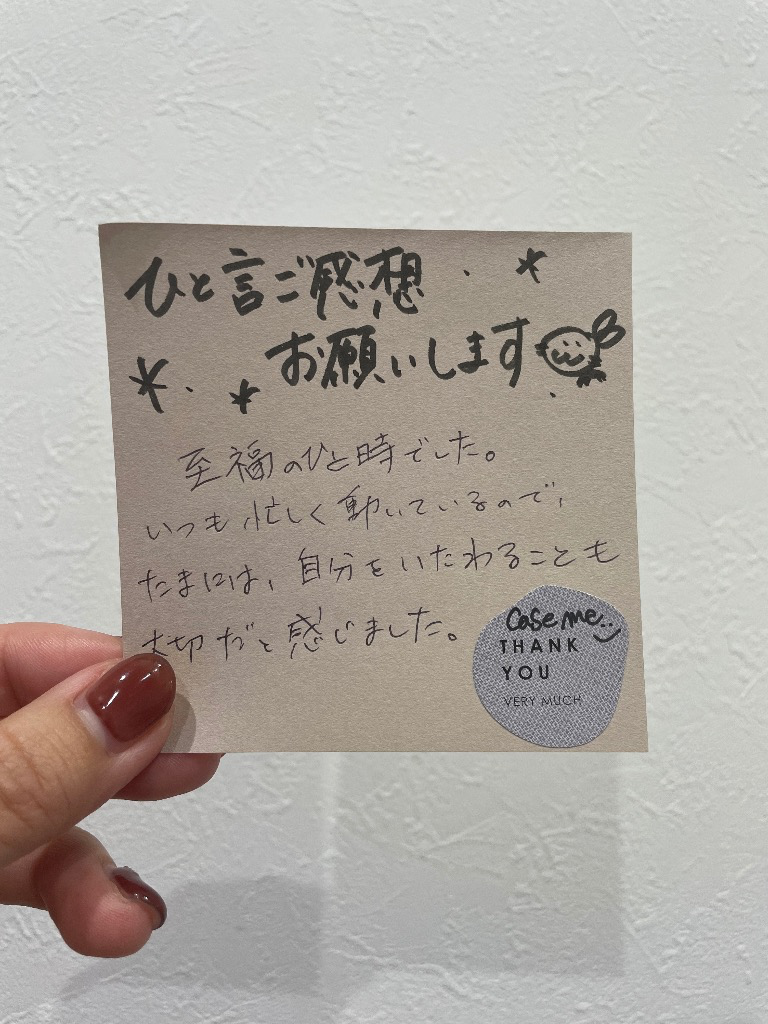 ひと言ご感想
お願いします
至福のひと時でした。
いつも忙しく動いているので、
たまには、自分をいたわることも
大切だと感じました。
Case me..
THANK
YOU
VERY MUCH